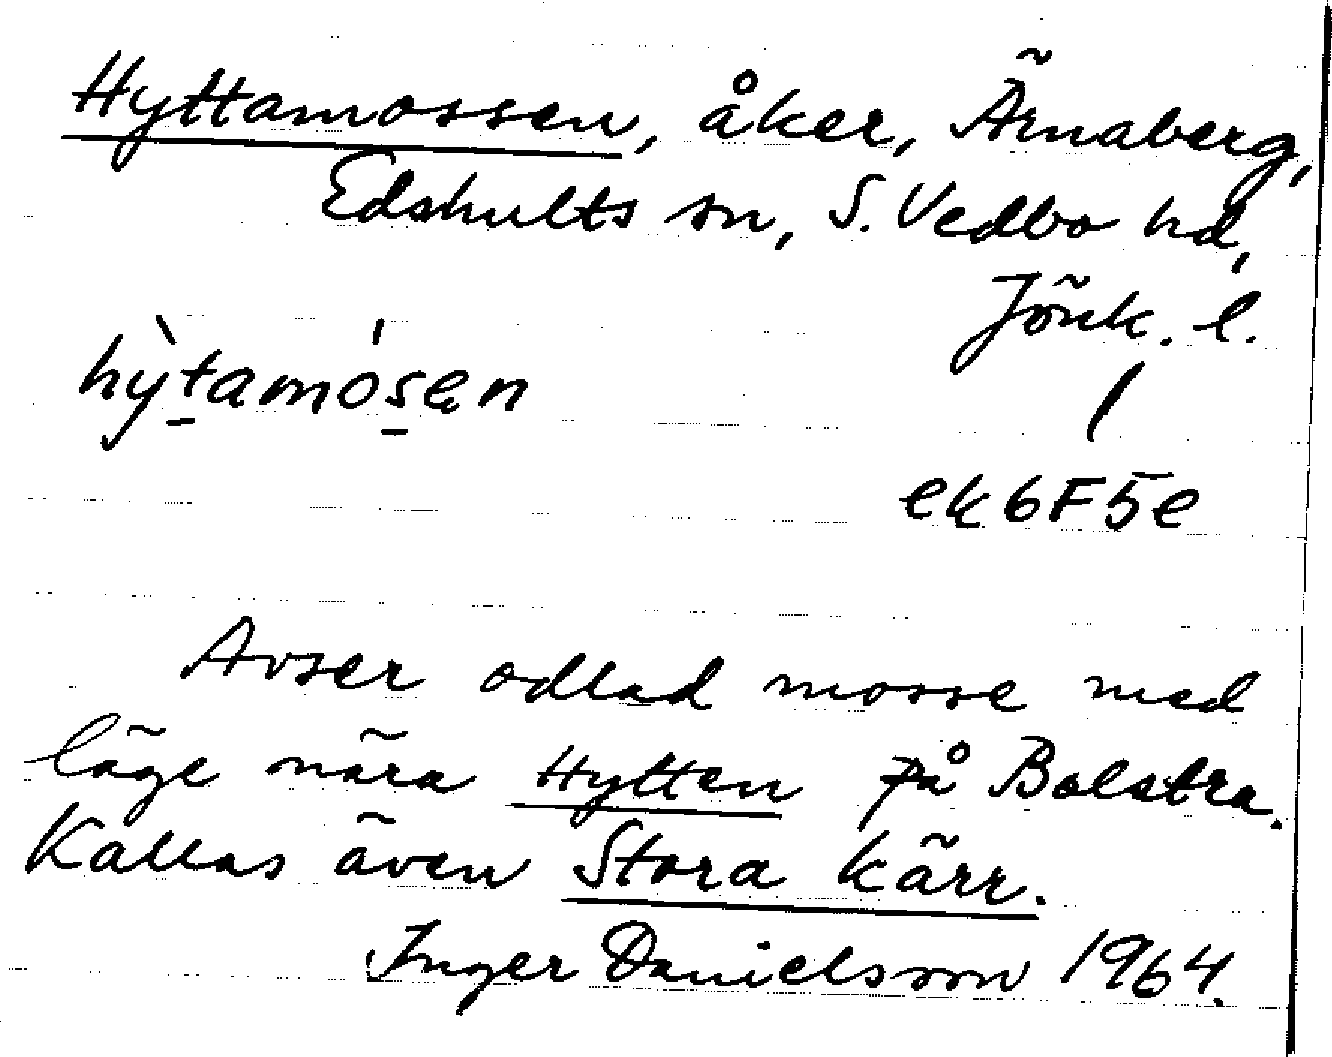 Hyttamossen, åker, Ärnaberg,
Edshults sn, S. Vedbo hd,
Jönk. l.
hy̖tamósen
ek6F5e
Avser odlad mosse med
läge nära Hytten på Bolstra.
Kallas även Stora kärr.
Inger Danielsson 1964.